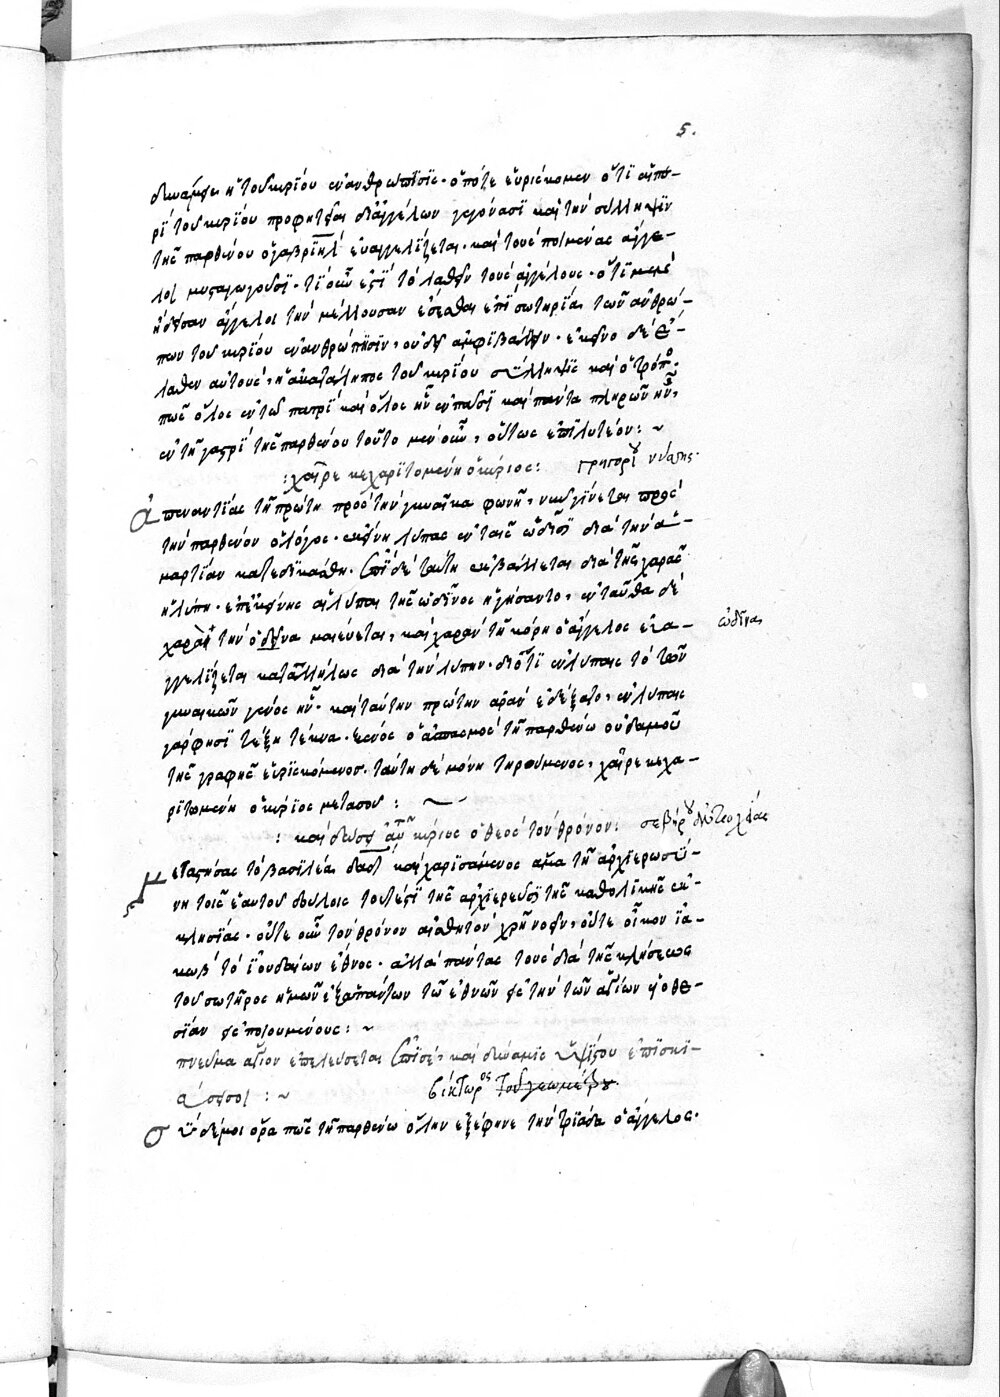 5.
δυνάμει ἡ τοῦ κυρίου ἐνανθρώπισις· ὁπότε εὑρίσκομεν ὅτι αἱ πε-
ρὶ τοῦ κυρίου προφητεῖαι δι' ἀγγέλων γεγόνασι καὶ τὴν σύλληψιν
τῆς παρθένου ὁ γαβριὴλ εὐαγγελίζεται· καὶ τοὺς ποιμένας ἄγγε-
λοι μυσταγωγοῦσι· τί οὖν ἐστὶ τὸ λαθὸν τοὺς ἀγγέλους· ὅτι μὲν
ἤδεισαν ἄγγελοι τὴν μέλλουσαν ἔσεσθαι ἐπὶ σωτηρία τῶν ἀνθρώ-
πων τοῦ κυρίου ἐνανθρώπησιν, οὐδεὶς ἀμφιβάλλει· ἐκεῖνο δὲ ἔ-
λαθεν αὐτοὺς, ἡ ἀκατάληπτος τοῦ κυρίου σύλληψις καὶ ὁ τρόπος
πῶς ὅλος ἐν τῷ πατρὶ καὶ ὅλος ἦν ἐν πᾶσι καὶ πάντα πληρῶν ἦν,
ἐν τῇ γαστρὶ τῆς παρθένου τοῦτο μὲν οὖν, οὕτως ἐπιλυτέον: ~
:χαῖρε κεχαριτωμένη ὁ κύριος: γρηγορίου νύσης·
ἀπεναντίας τῇ πρώτῃ πρὸς τὴν γυναῖκα φωνῇ, νῦν γίνεται πρὸς
τὴν παρθένον ὁ λόγος· ἐκείνη λύπας ἐν ταῖς ὠδῖσι διὰ τὴν ἁ-
μαρτίαν κατεδικάσθη· ἐπὶ δὲ ταύτῃ ἐκβάλλεται διὰ τῆς χαρᾶς
ἡ λύπη· ἐπ' ἐκείνης αἱ λύπαι τῆς ὠδῖνος ἡγήσαντο, ἐνταῦθα δὲ
χαρὰ τὴν ὀδύνα μαιεύεται, καὶ χαρὰν τῇ κόρῃ ὁ ἄγγελος εὐα- ὠδῖνα,
γγελίζεται καταλλήλως διὰ τὴν λύπην· διότι ἐν λύπαις τὸ τῶν
γυναικῶν γένος ἦν· καὶ ταύτην πρώτην ἀρὰν ἐδέξατο, ἐν λύπαις
γάρ φησι τέξῃ τέκνα· ξένος ὁ ἀσπασμὸς τῇ παρθένω οὐδαμοῦ
τῆς γραφῆς εὑρισκόμενος· ταύτῃ δὲ μόνῃ τηρούμενος, χαῖρε κεχα-
ριτωμένη ὁ κύριος μετὰ σοῦ : ~
: καὶ δώσει αὐτῷ κύριος ὁ θεὸς τὸν θρόνον:
Μεταστήσας τὸ βασίλειον δαδ καὶ χαρισάμενος ἅμα τῇ ἀρχιερωσύ-
νῃ τοῖς ἑαυτοῦ δούλοις τουτέστι τῆς ἀρχιερεῦσι τῆς καθολικῆς ἐκ-
κλησίας· οὔτε οὖν τὸν θρόνον αἰσθητὸν χρὴ νοεῖν, οὔτε οἶκον ἰα-
κωβ τὸ ἰουδαίων ἔθνος· ἀλλὰ πάντας τοὺς διὰ τῆς κλήσεως
τοῦ σωτῆρος ἡμῶν ἐξ ἁπάντων τῶν ἐθνῶν εἰς τὴν τῶν ἁγίων υἱοθε-
σίαν εἰσποιουμένους: ~
πνεῦμα ἅγιον ἐπελεύσεται ἐπὶ σὲ, καὶ δύναμις ὑψίστου ἐπισκι-
άσει σοι : ~ βίκτωρος τοῦ γεωμέτρου
Σὺ δέ μοι ὅρα πῶς τῇ παρθένω ὅλην ἐξέφηνε τὴν τριάδα ὁ ἄγγελος·